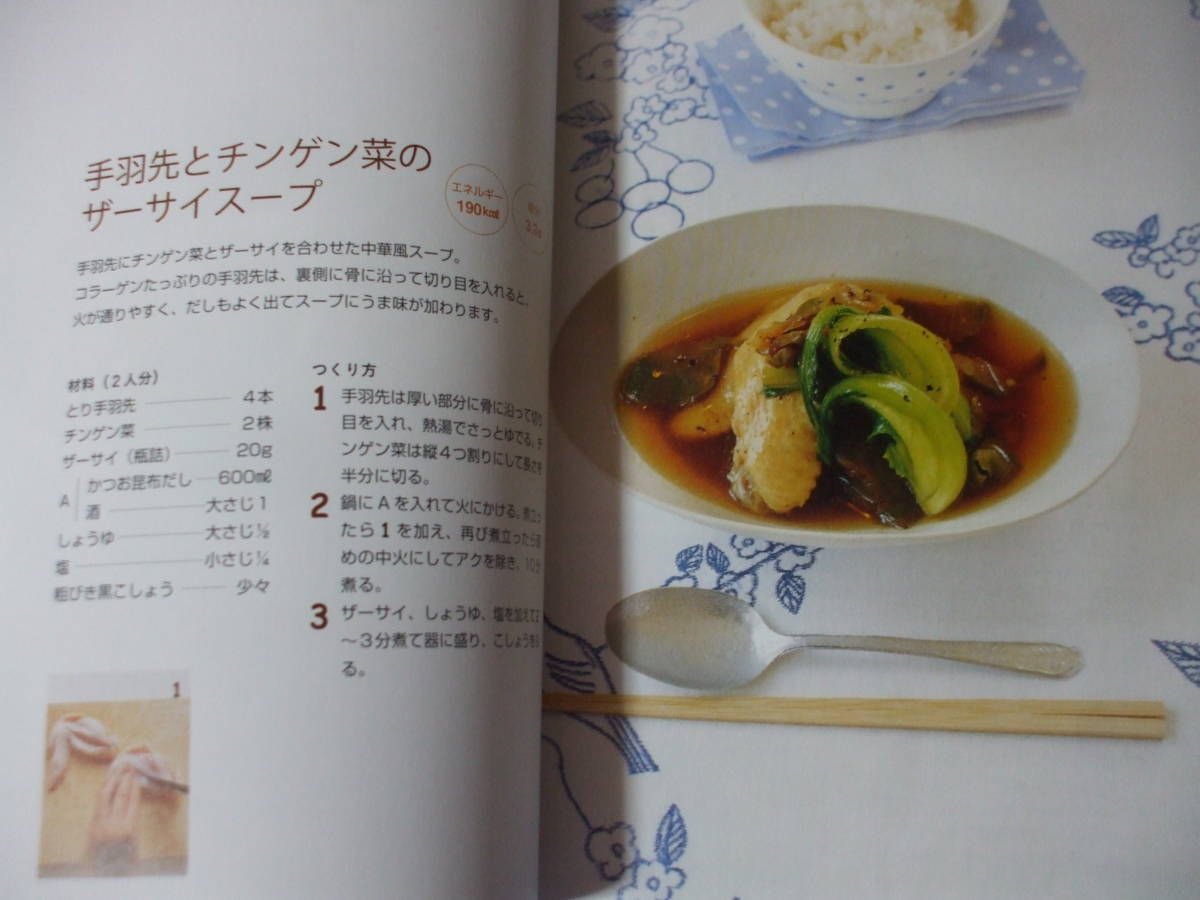 手羽先とチンゲン菜の
ザーサイスープ
エネルギー
190kcal
手羽先にチンゲン菜とザーサイを合わせた中華風スープ。
コラーゲンたっぷりの手羽先は、裏側に骨に沿って切り目を入れると、
火が通りやすく、だしもよく出てスープにうま味が加わります。
材料（2人分）
とり手羽先 4本
チンゲン菜 2株
ザーサイ（瓶詰） 20g
A かつお昆布だし 600㎖
酒 大さじ1
しょうゆ 大さじ½
塩 小さじ¼
粗びき黒こしょう 少々
つくり方
1 手羽先は厚い部分に骨に沿って切り
目を入れ、熱湯でさっとゆでる。チ
ンゲン菜は縦4つ割りにして長さを
半分に切る。
2 鍋にAを入れて火にかける。煮立っ
たら1を加え、再び煮立ったら
めの中火にしてアクを除き、10分
煮る。
3 ザーサイ、しょうゆ、塩を加えて2
〜3分煮て器に盛り、こしょうを
る。
1